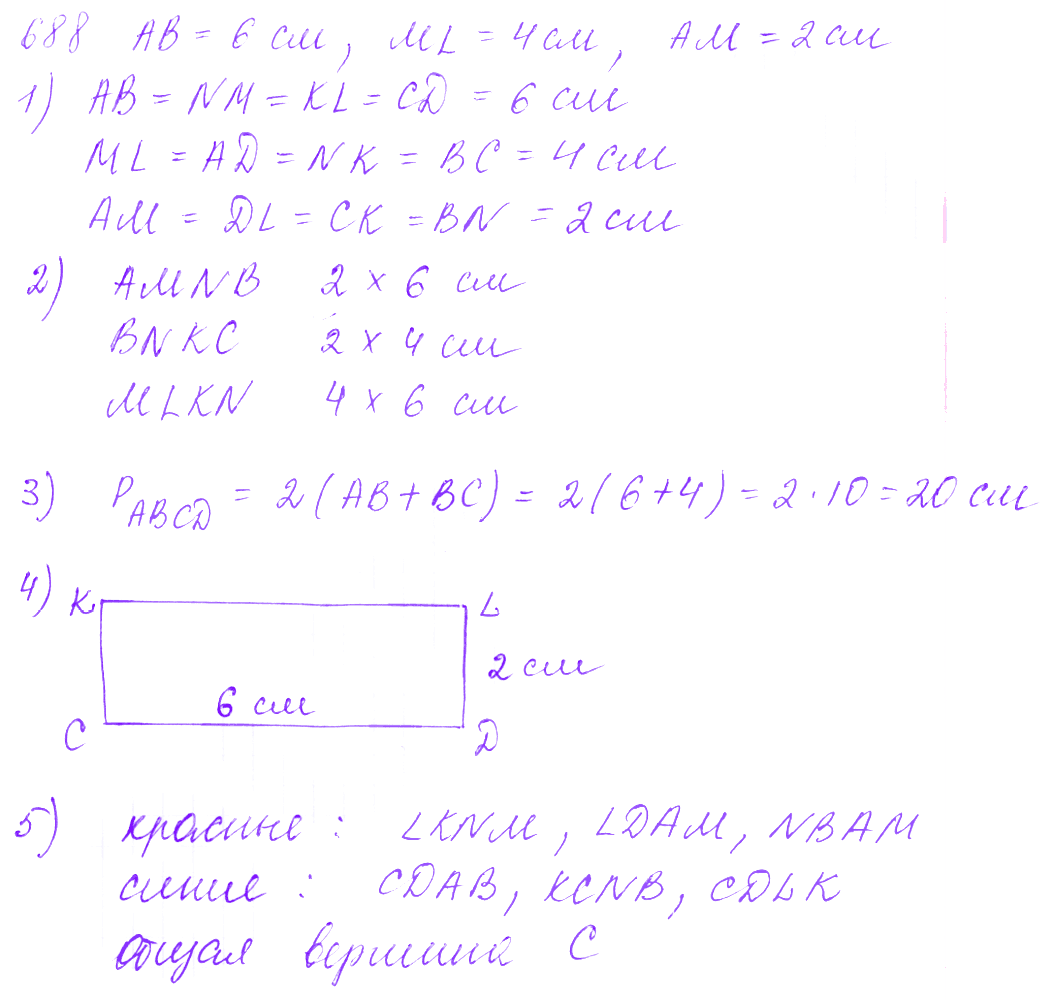 688 AB = 6 см, ML = 4 см, AM = 2 см
1) AB = NM = KL = CD = 6 см
ML = AD = NK = BC = 4 см
AM = DL = CK = BN = 2 см
2) AMNB 2 × 6 см
BNKC 2 × 4 см
MLKN 4 × 6 см
3) P ABCD = 2(AB + BC) = 2(6+4) = 2 · 10 = 20 см
4) K L
2 см
6 см
C D
5) красные : LKNM, LDAM, NBAM
синие : CDAB, KCNB, CDLK
общая вершина C